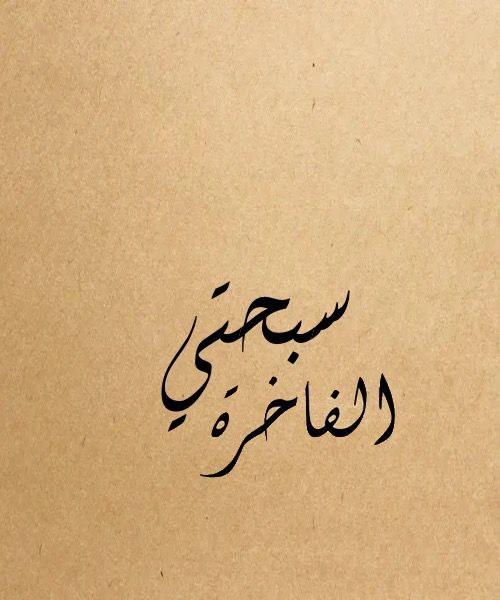 سبحتي
الفاخرة